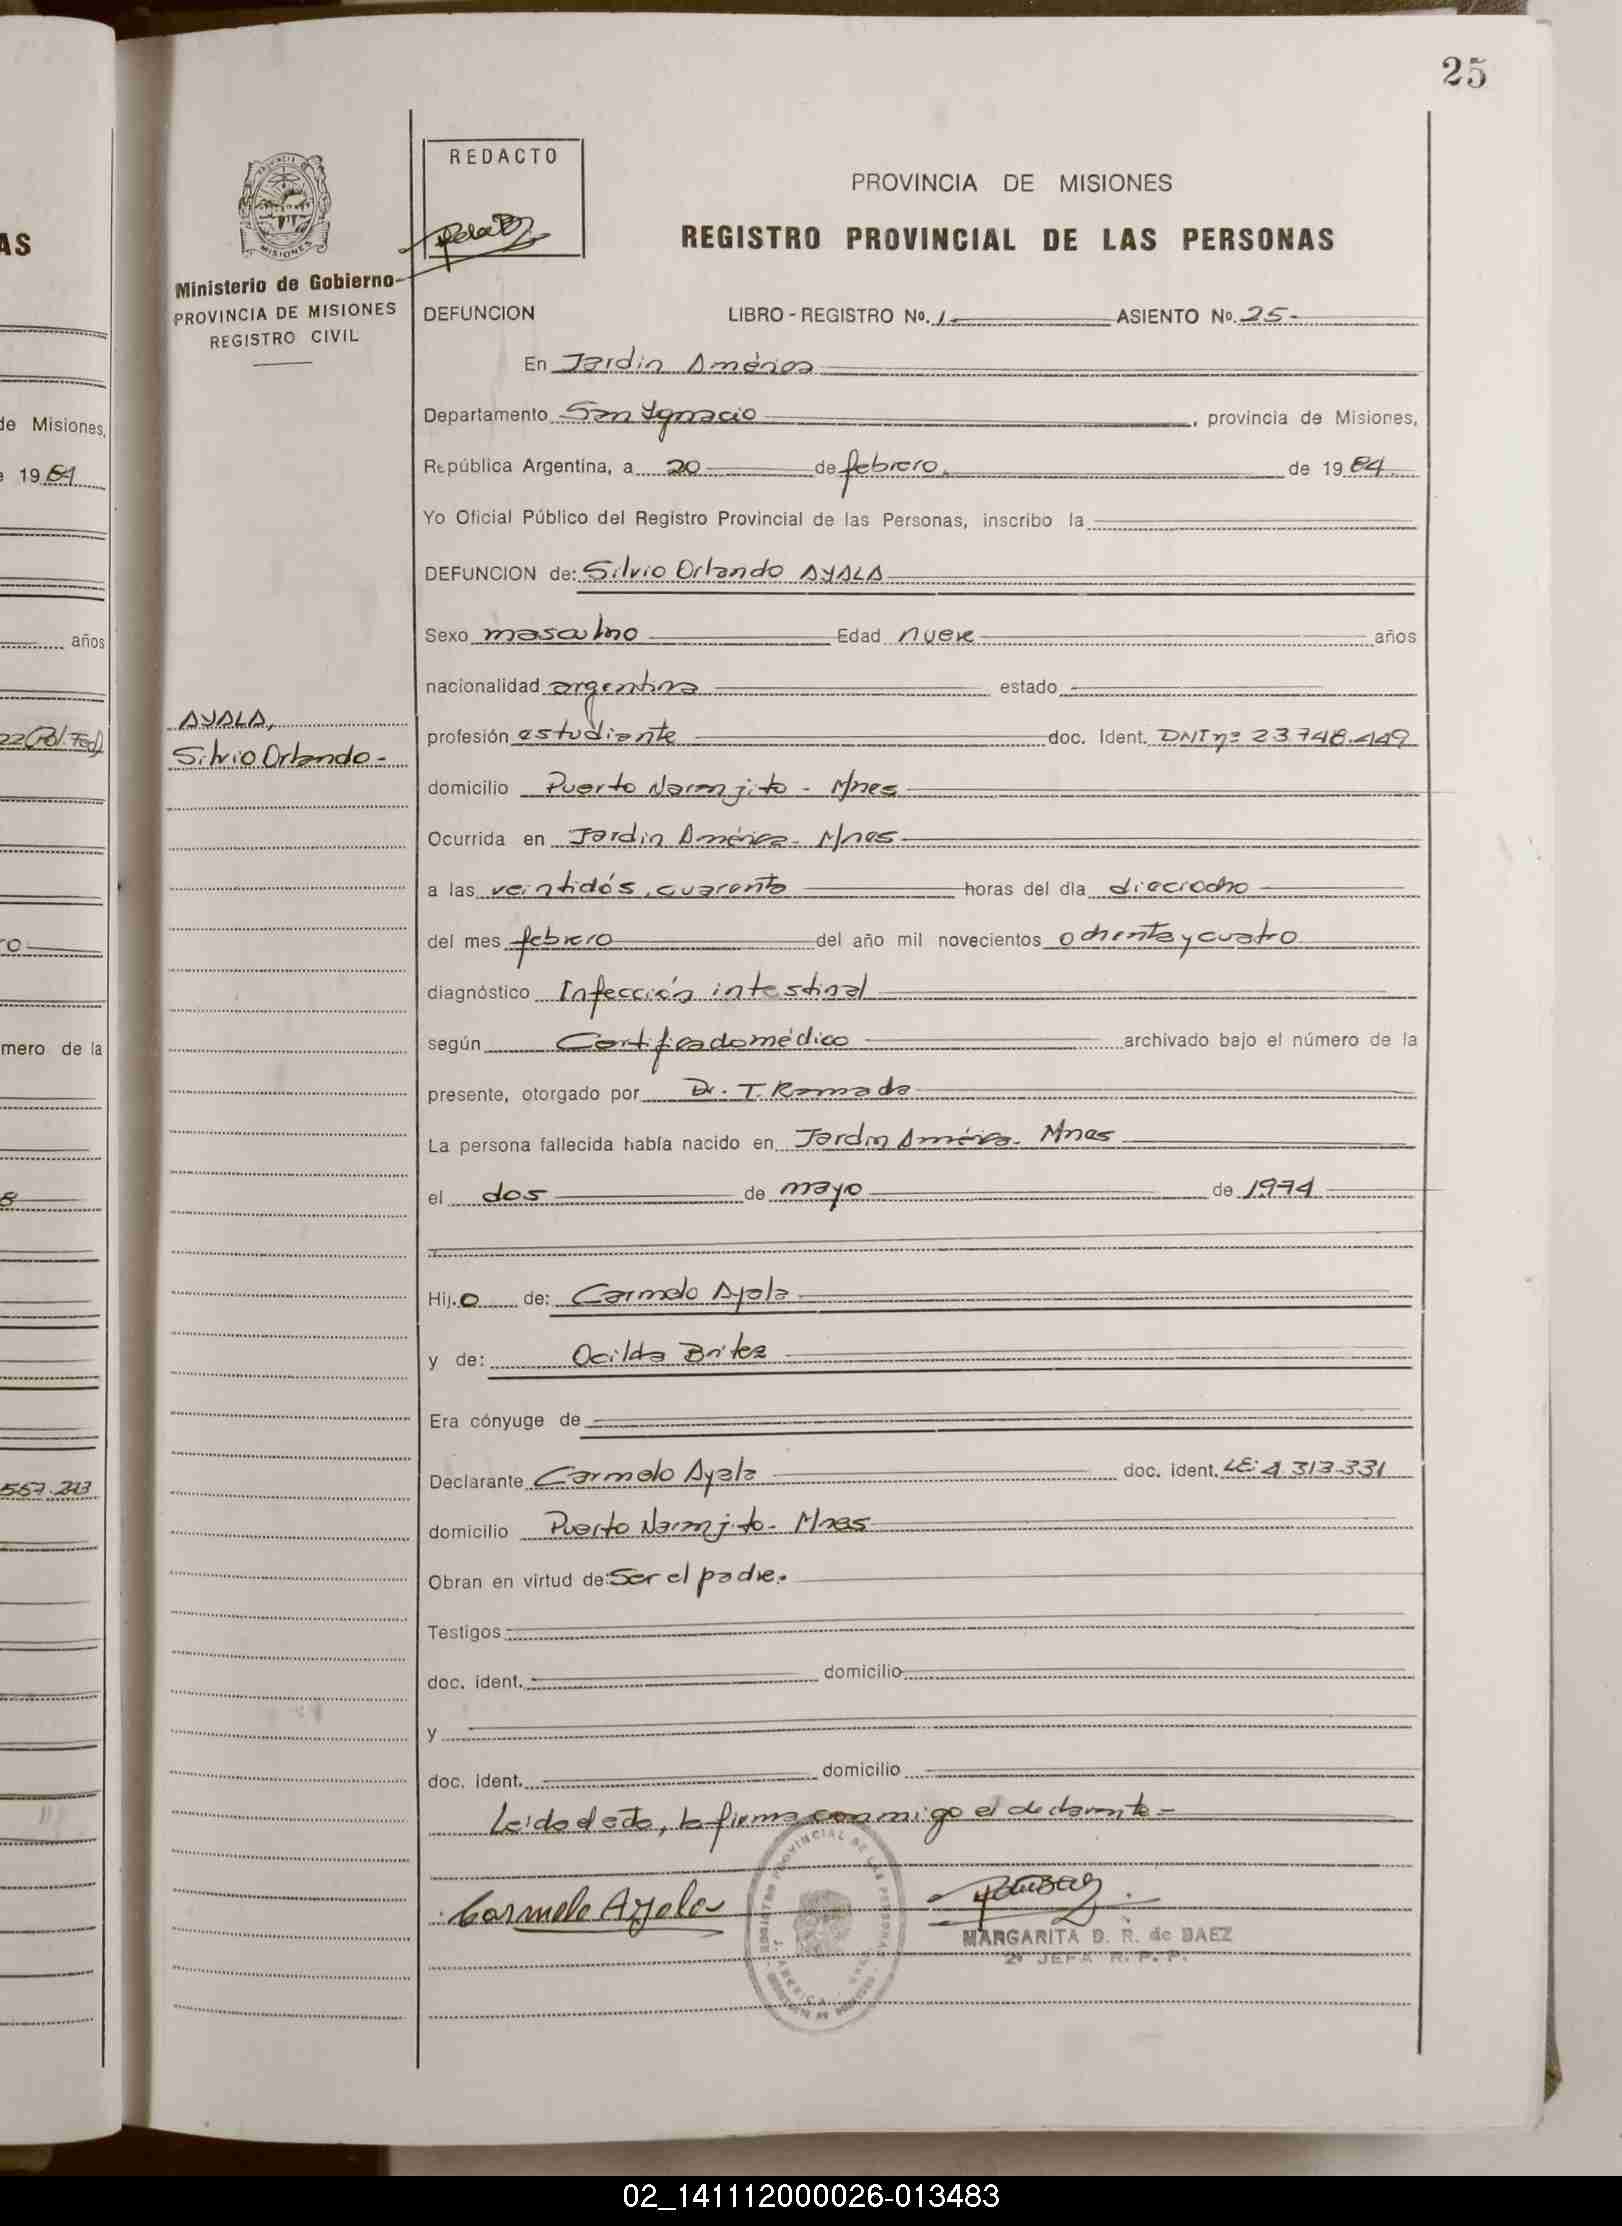 25
REDACTO
PROVINCIA DE MISIONES
REGISTRO PROVINCIAL DE LAS PERSONAS
AS
Ministerio de Gobierno
PROVINCIA DE MISIONES
REGISTRO CIVIL
DEFUNCION LIBRO - REGISTRO No. 1- ASIENTO No. 25-
En Jardín América
de Misiones,
Departamento San Ignacio, provincia de Misiones,
e 1984
República Argentina, a 20 de febrero, de 1984
Yo Oficial Público del Registro Provincial de las Personas, inscribo la
DEFUNCION de: Silvio Orlando AYALA
años
Sexo masculino Edad nueve años
nacionalidad argentina estado
AYALA,
Silvio Orlando-
22 (Pol. Fed)
profesión estudiante doc. Ident. DNI nº 23.748.449
domicilio Puerto Naranjito - Mnes
Ocurrida en Jardín América - Mnes
a las veintidós, cuarenta horas del día dieciocho
ro
del mes febrero del año mil novecientos ochenta y cuatro
diagnóstico Infección intestinal
mero de la
según Certificado médico archivado bajo el número de la
presente, otorgado por Dr. T. Ramada
La persona fallecida había nacido en Jardín América - Mnes
8
el dos de mayo de 1974
Hijo de: Carmelo Ayala
y de: Ocilda Britez
Era cónyuge de
557.243
Declarante Carmelo Ayala doc. ident. LE: 4.313.331
domicilio Puerto Naranjito - Mnes
Obran en virtud de: Ser el padre.
Testigos
doc. ident. domicilio
y
doc. ident. domicilio
Leída el acta, la firma conmigo el declarante-
REGISTRO PROVINCIAL DE LAS PERSONAS
Carmelo Ayala
MARGARITA D. R. de BAEZ
2º JEFA R. P. P.
02_141112000026-013483